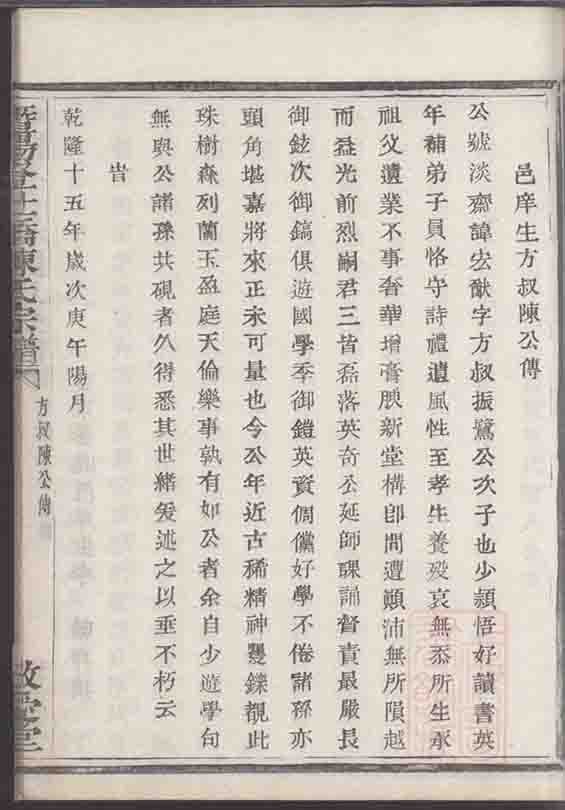 邑庠生方叔陳公傳
公號淡齋諱宏猷字方叔振鷺公次子也少穎悟好讀書英
年補弟子員恪守詩禮遺風性至孝生養歿哀無忝所生承
祖父遺業不事奢華增膏腴新堂構卽間遭顚沛無所隕越
而益光前烈嗣君三皆磊落英奇公延師課誦督責最嚴長
御鉉次御鎬俱遊國學季御鎧英資倜儻好學不倦諸孫亦
頭角堪嘉將來正未可量也今公年近古稀精神矍鑠覩此
珠樹森列蘭玉盈庭天倫樂事孰有如公者余自少遊學句
無與公諸孫共硯者久得悉其世緒爰述之以垂不朽云
旹
乾隆十五年歲次庚午陽月
陳氏宗譜
方叔陳公傳